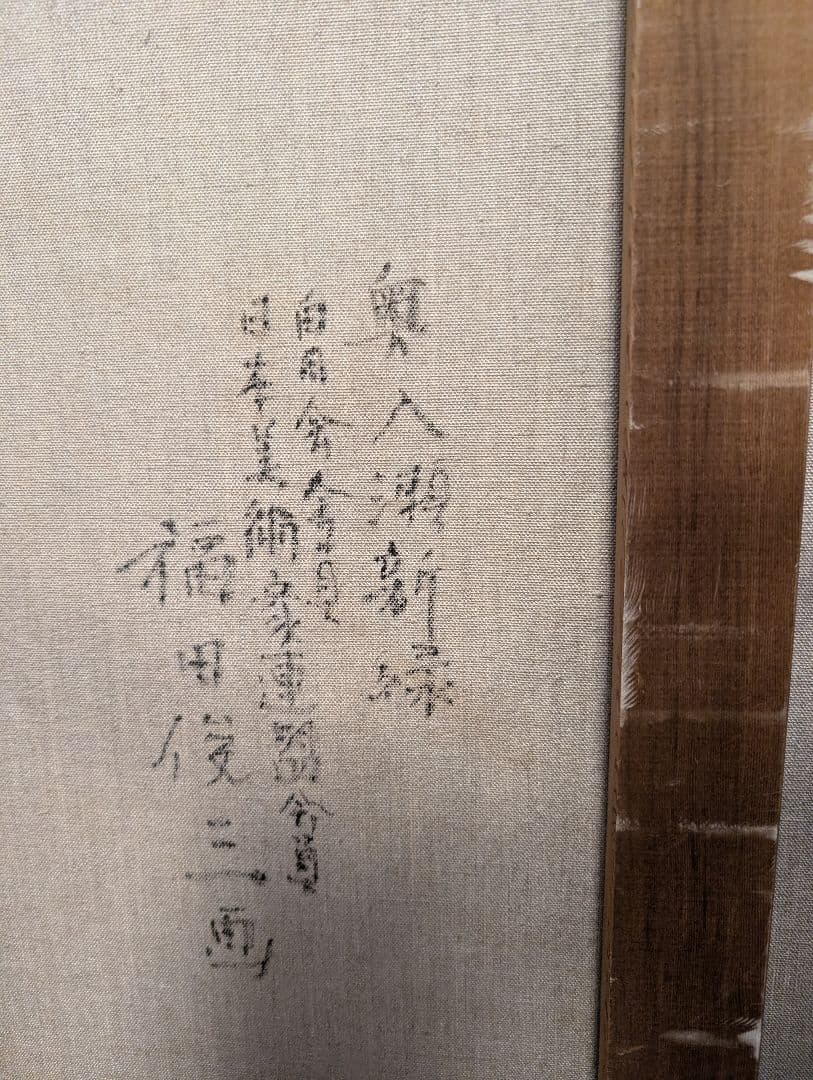 奥入瀬新緑
白日会会員
日本美術家連盟会員
福田俊三画